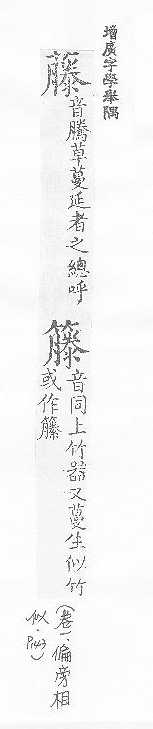 增廣字學舉隅
藤 音騰草蔓延者之總呼
籐 音同上竹器又蔓生似竹
或作籘
(卷一、偏旁相
似．P143)